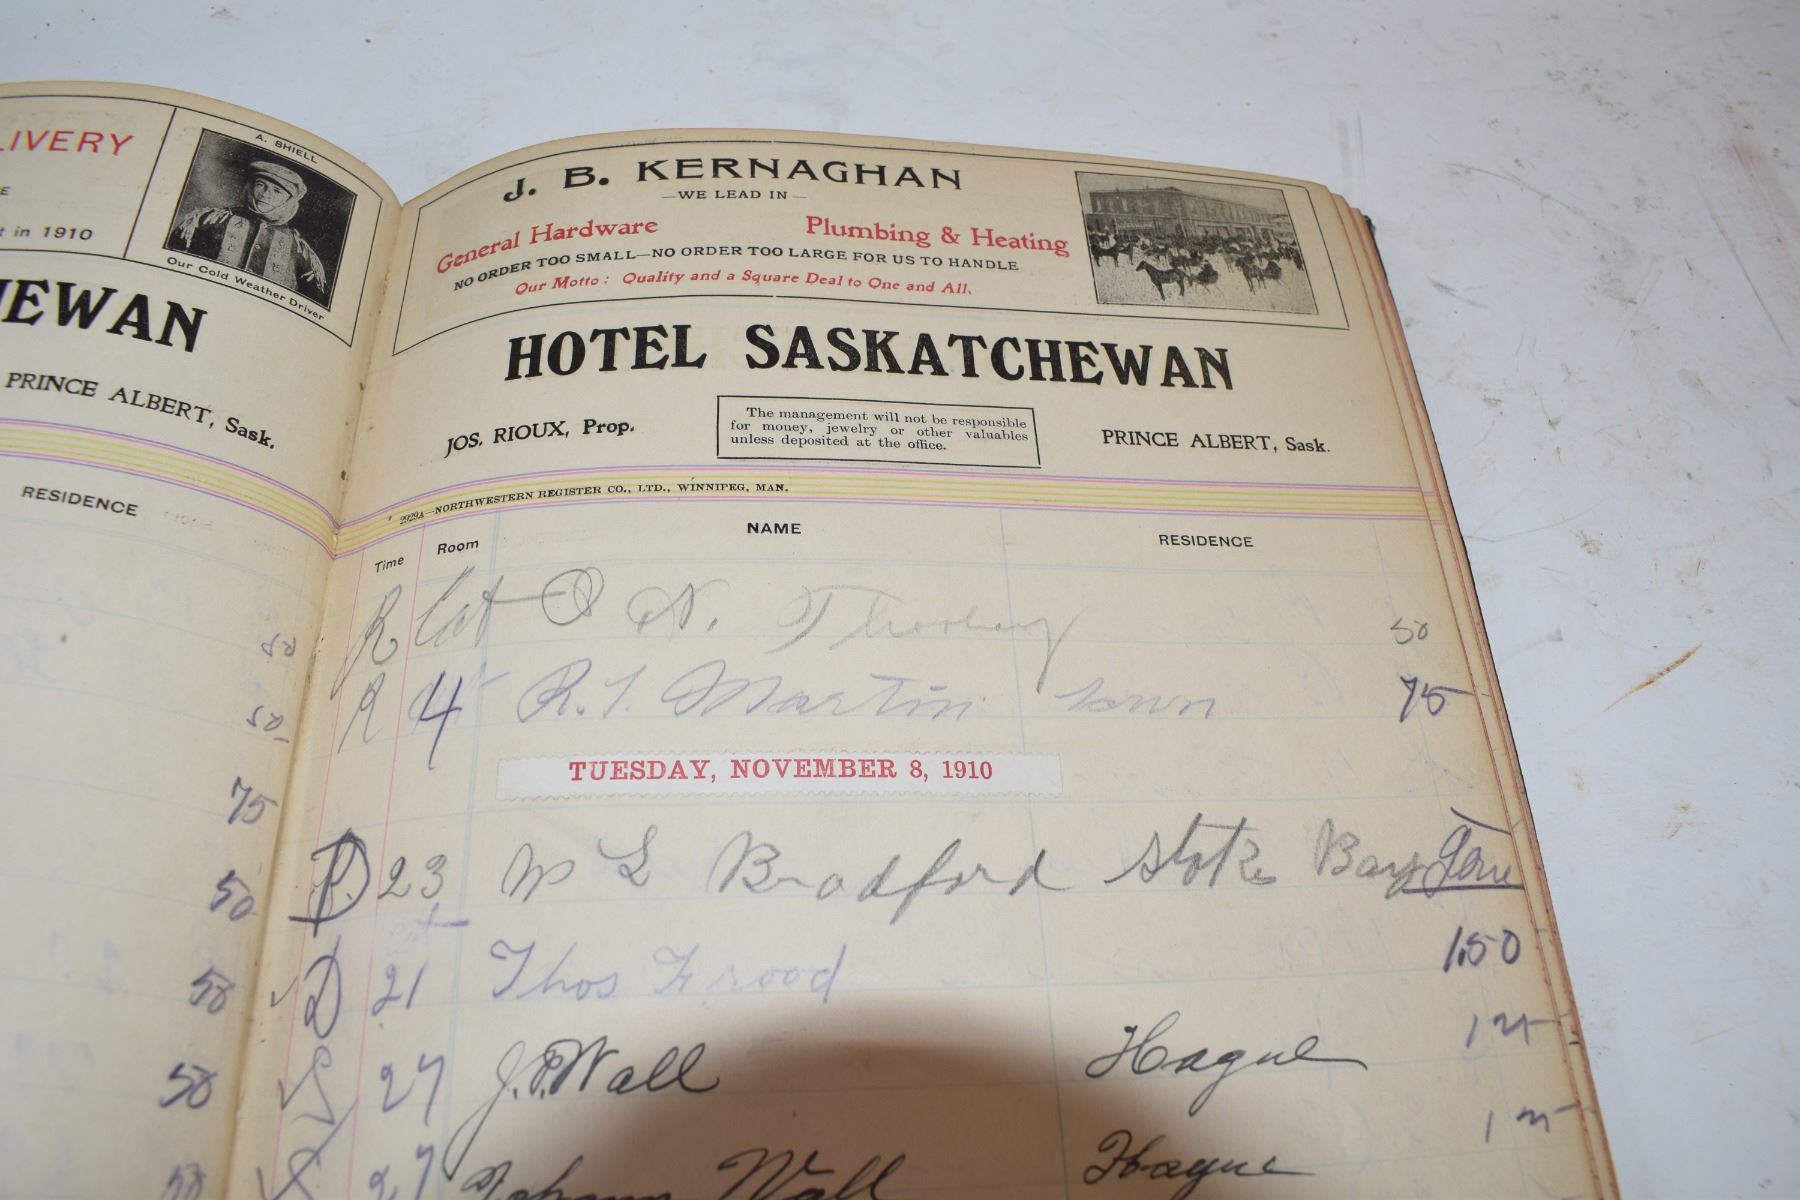 LIVERY
E
t in 1910
A. SHIELL
Our Cold Weather Driver
EWAN
PRINCE ALBERT, Sask.
RESIDENCE
75
50
50
50
50
J. B. KERNAGHAN
—WE LEAD IN—
General Hardware Plumbing & Heating
NO ORDER TOO SMALL—NO ORDER TOO LARGE FOR US TO HANDLE
Our Motto: Quality and a Square Deal to One and All.
HOTEL SASKATCHEWAN
JOS. RIOUX, Prop.
The management will not be responsible
for money, jewelry or other valuables
unless deposited at the office.
PRINCE ALBERT, Sask.
2929A—NORTHWESTERN REGISTER CO., LTD., WINNIPEG, MAN.
Time Room NAME RESIDENCE
R Cot N. 50
R 4 R. Martin Town 75
TUESDAY, NOVEMBER 8, 1910
23 Bradford Stoke Bay
D 21 Thos Frood 1.50
27 J.P. Wall Hague
27 Johann Wall Hague